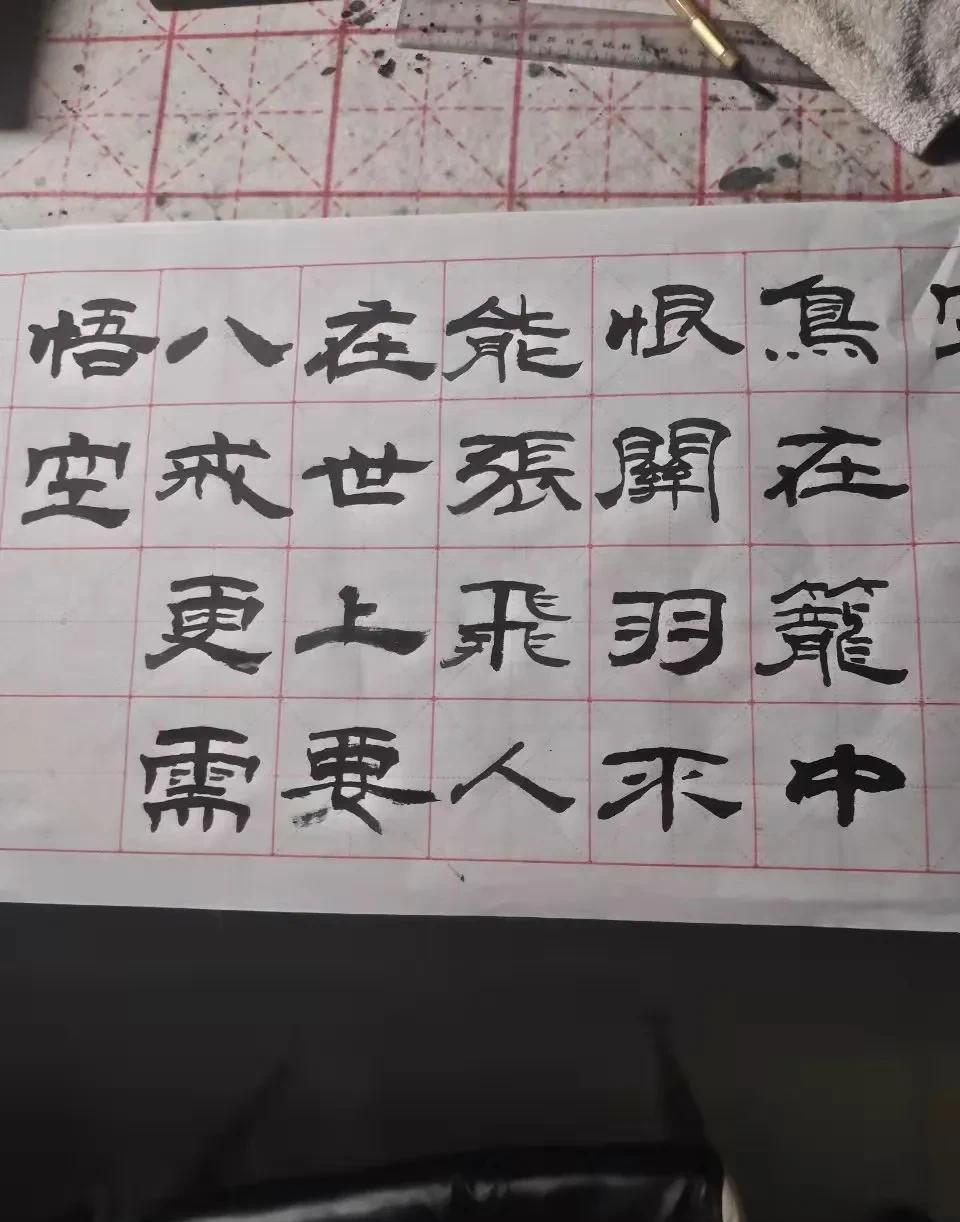 鳥在籠中
恨關羽不
能張飛人
在世上要
八戒更需
悟空